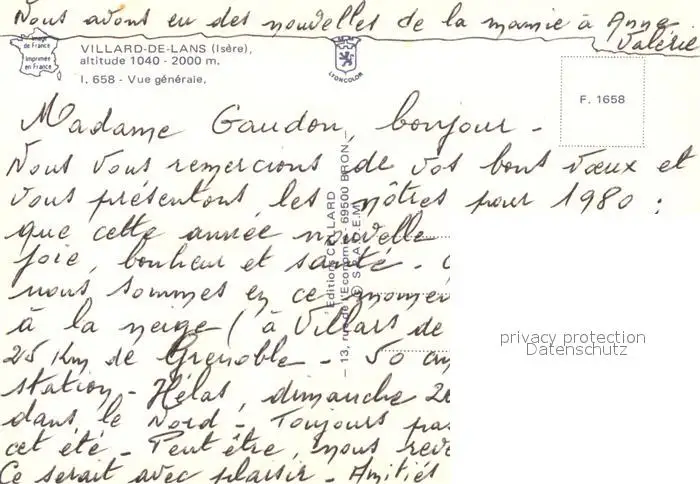 Nous avons eu des nouvelles de la mamie à Anne
Valérie
Image
de France
Imprimée
en France
VILLARD-DE-LANS (Isère),
altitude 1040 - 2000 m.
I. 658 - Vue générale.
LYONCOLOR
F. 1658
Madame Gaudon, bonjour -
Nous vous remercions de vos bons vœux et
vous présentons les nôtres pour 1980 :
que cette année nouvelle
joie, bonheur et santé -
nous sommes en ce momen
à la neige ( à Villars de
25 Km de Grenoble - 50
station - Hélas, dimanche
dans le Nord - Toujours pas
cet été - Peut être, nous reve
Ce serait avec plaisir - Amitiés
Editions CELLARD
13, rue de l'Economie - 69500 BRON
privacy protection
Datenschutz